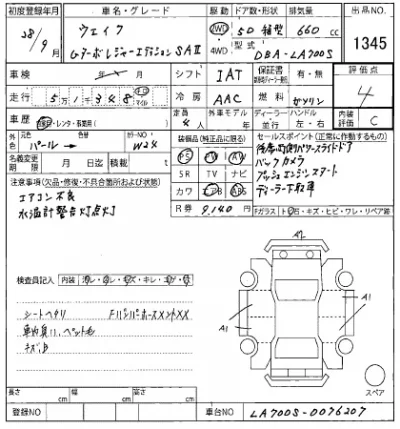 初度登録年月 車名・グレード 駆動 ドア数・形状 排気量 出品NO.
28/9月 ウェイク 2WD 5D 箱型 660cc 1345
GターボレジャーエディションSAⅢ 4WD 型式 DBA-LA700S
車検 年 月 シフト IAT 保証書 有・無 評価点
4
走行 5万1千348 km マイル 冷房 AAC 燃料 ガソリン
車歴 自家・レンタ・ 定員 4人 外車モデル ディーラー 並行 ハンドル 左・右 内装評価 C
外色 元色 パール→ 色替 カラーNO. W24
装備品(純正品に限る) セールスポイント(正常に作動するもの)
PS PW AW
SR TV ナビ
カワ エアB ABS
名義変更期限 月 日迄 積載 t
両側パワースライドドア
バックカメラ
プッシュエンジンスタート
ディーラー下取車
注意事項(欠品・修復・不具合箇所および状態)
エアコン不良
水温計警告灯点灯
R券 9,140円
Fガラス トビ石・キズ・ヒビ・ワレ・リペア跡
A2
検査員記入 内装
シートヘタリ FバンパーホースメントXX
A1
A1
スペア
長さ cm 幅 cm 高さ cm
登録NO 車台NO LA700S-0076207